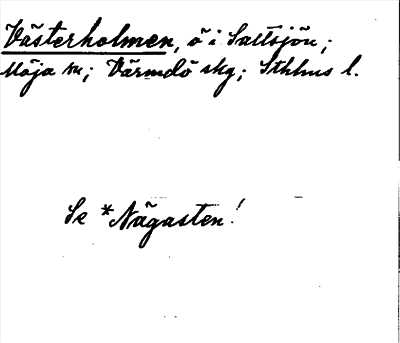 Västerholmen, ö i Saltsjön;
Möja sn; Värmdö skg; Sthlms l.
Se *Nagasten!